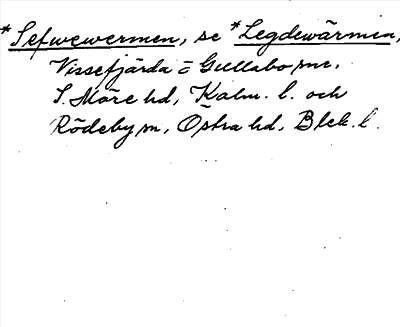 *Sefwewermen, se *Legdewärmen,
Vissefjärda o Gullabo snr,
S. Möre hd, Kalm. l. och
Rödeby sn, Östra hd, Blek. l.